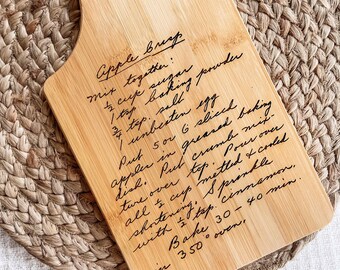 Apple Crisp
Mix together:
½ cup sugar
1 tsp. baking powder
¾ tsp. salt
1 unbeaten egg
Put 5 or 6 sliced
apples in greased baking
dish. Put crumb mix-
ture over top. Pour over
all ⅓ cup melted & cooled
shortening. Sprinkle
with ½ tsp. cinnamon.
Bake 30 - 40 min.
in 350° oven.